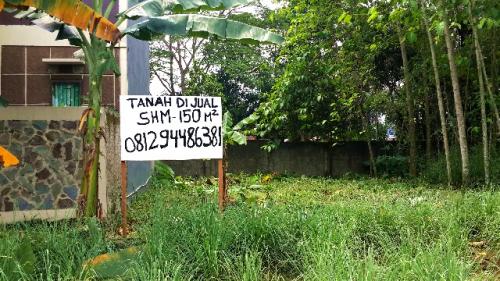 TANAH DI JUAL
SHM-150 M²
081294486381